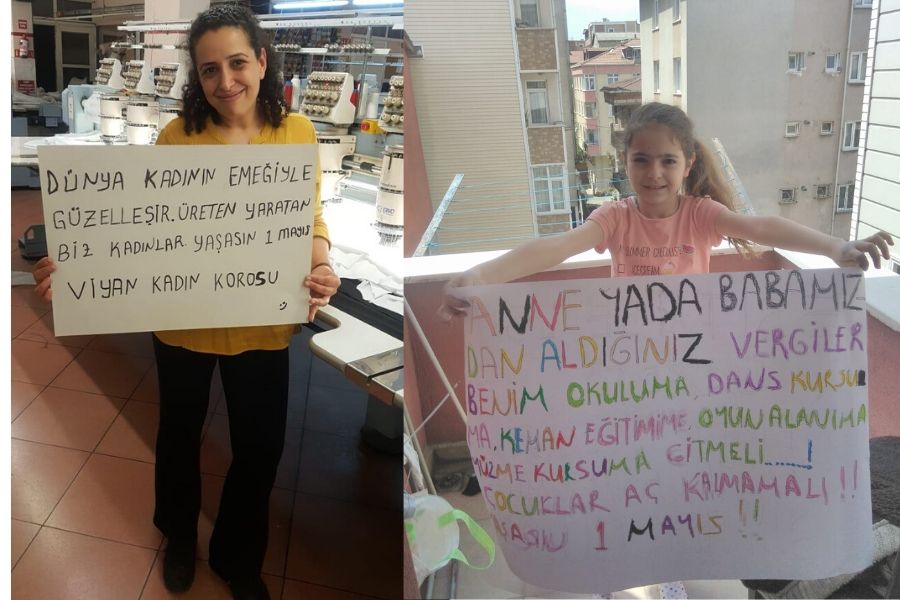 DÜNYA KADININ EMEĞİYLE
GÜZELLEŞİR. ÜRETEN YARATAN
BİZ KADINLAR YAŞASIN 1 MAYIS
VİYAN KADIN KOROSU
ANNE YADA BABAMIZ
DAN ALDIĞINIZ VERGİLER
BENİM OKULUMA, DANS KURSU
MA, KEMAN EĞİTİMİME, OYUN ALANIMA
YÜZME KURSUMA GİTMELİ.....!
ÇOCUKLAR AÇ KALMAMALI !!
YAŞASIN 1 MAYIS !!
ICECREAM